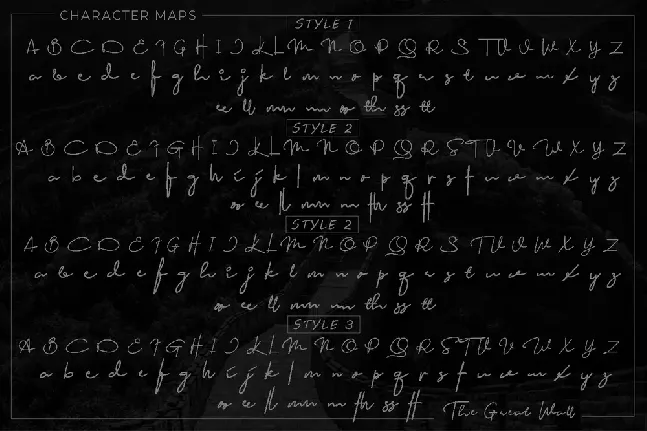 CHARACTER MAPS
STYLE 1
A B C D E F G H I J K L M N O P Q R S T U V W X Y Z
a b c d e f g h i j k l m n o p q r s t u v w x y z
ee ll mm nn oo th ss tt
STYLE 2
A B C D E F G H I J K L M N O P Q R S T U V W X Y Z
a b c d e f g h i j k l m n o p q r s t u v w x y z
oo ee ll mm nn th ss tt
STYLE 2
A B C D E F G H I J K L M N O P Q R S T U V W X Y Z
a b c d e f g h i j k l m n o p q r s t u v w x y z
oo ee ll mm nn th ss tt
STYLE 3
A B C D E F G H I J K L M N O P Q R S T U V W X Y Z
a b c d e f g h i j k l m n o p q r s t u v w x y z
oo ee ll mm nn th ss tt
The Great Wall